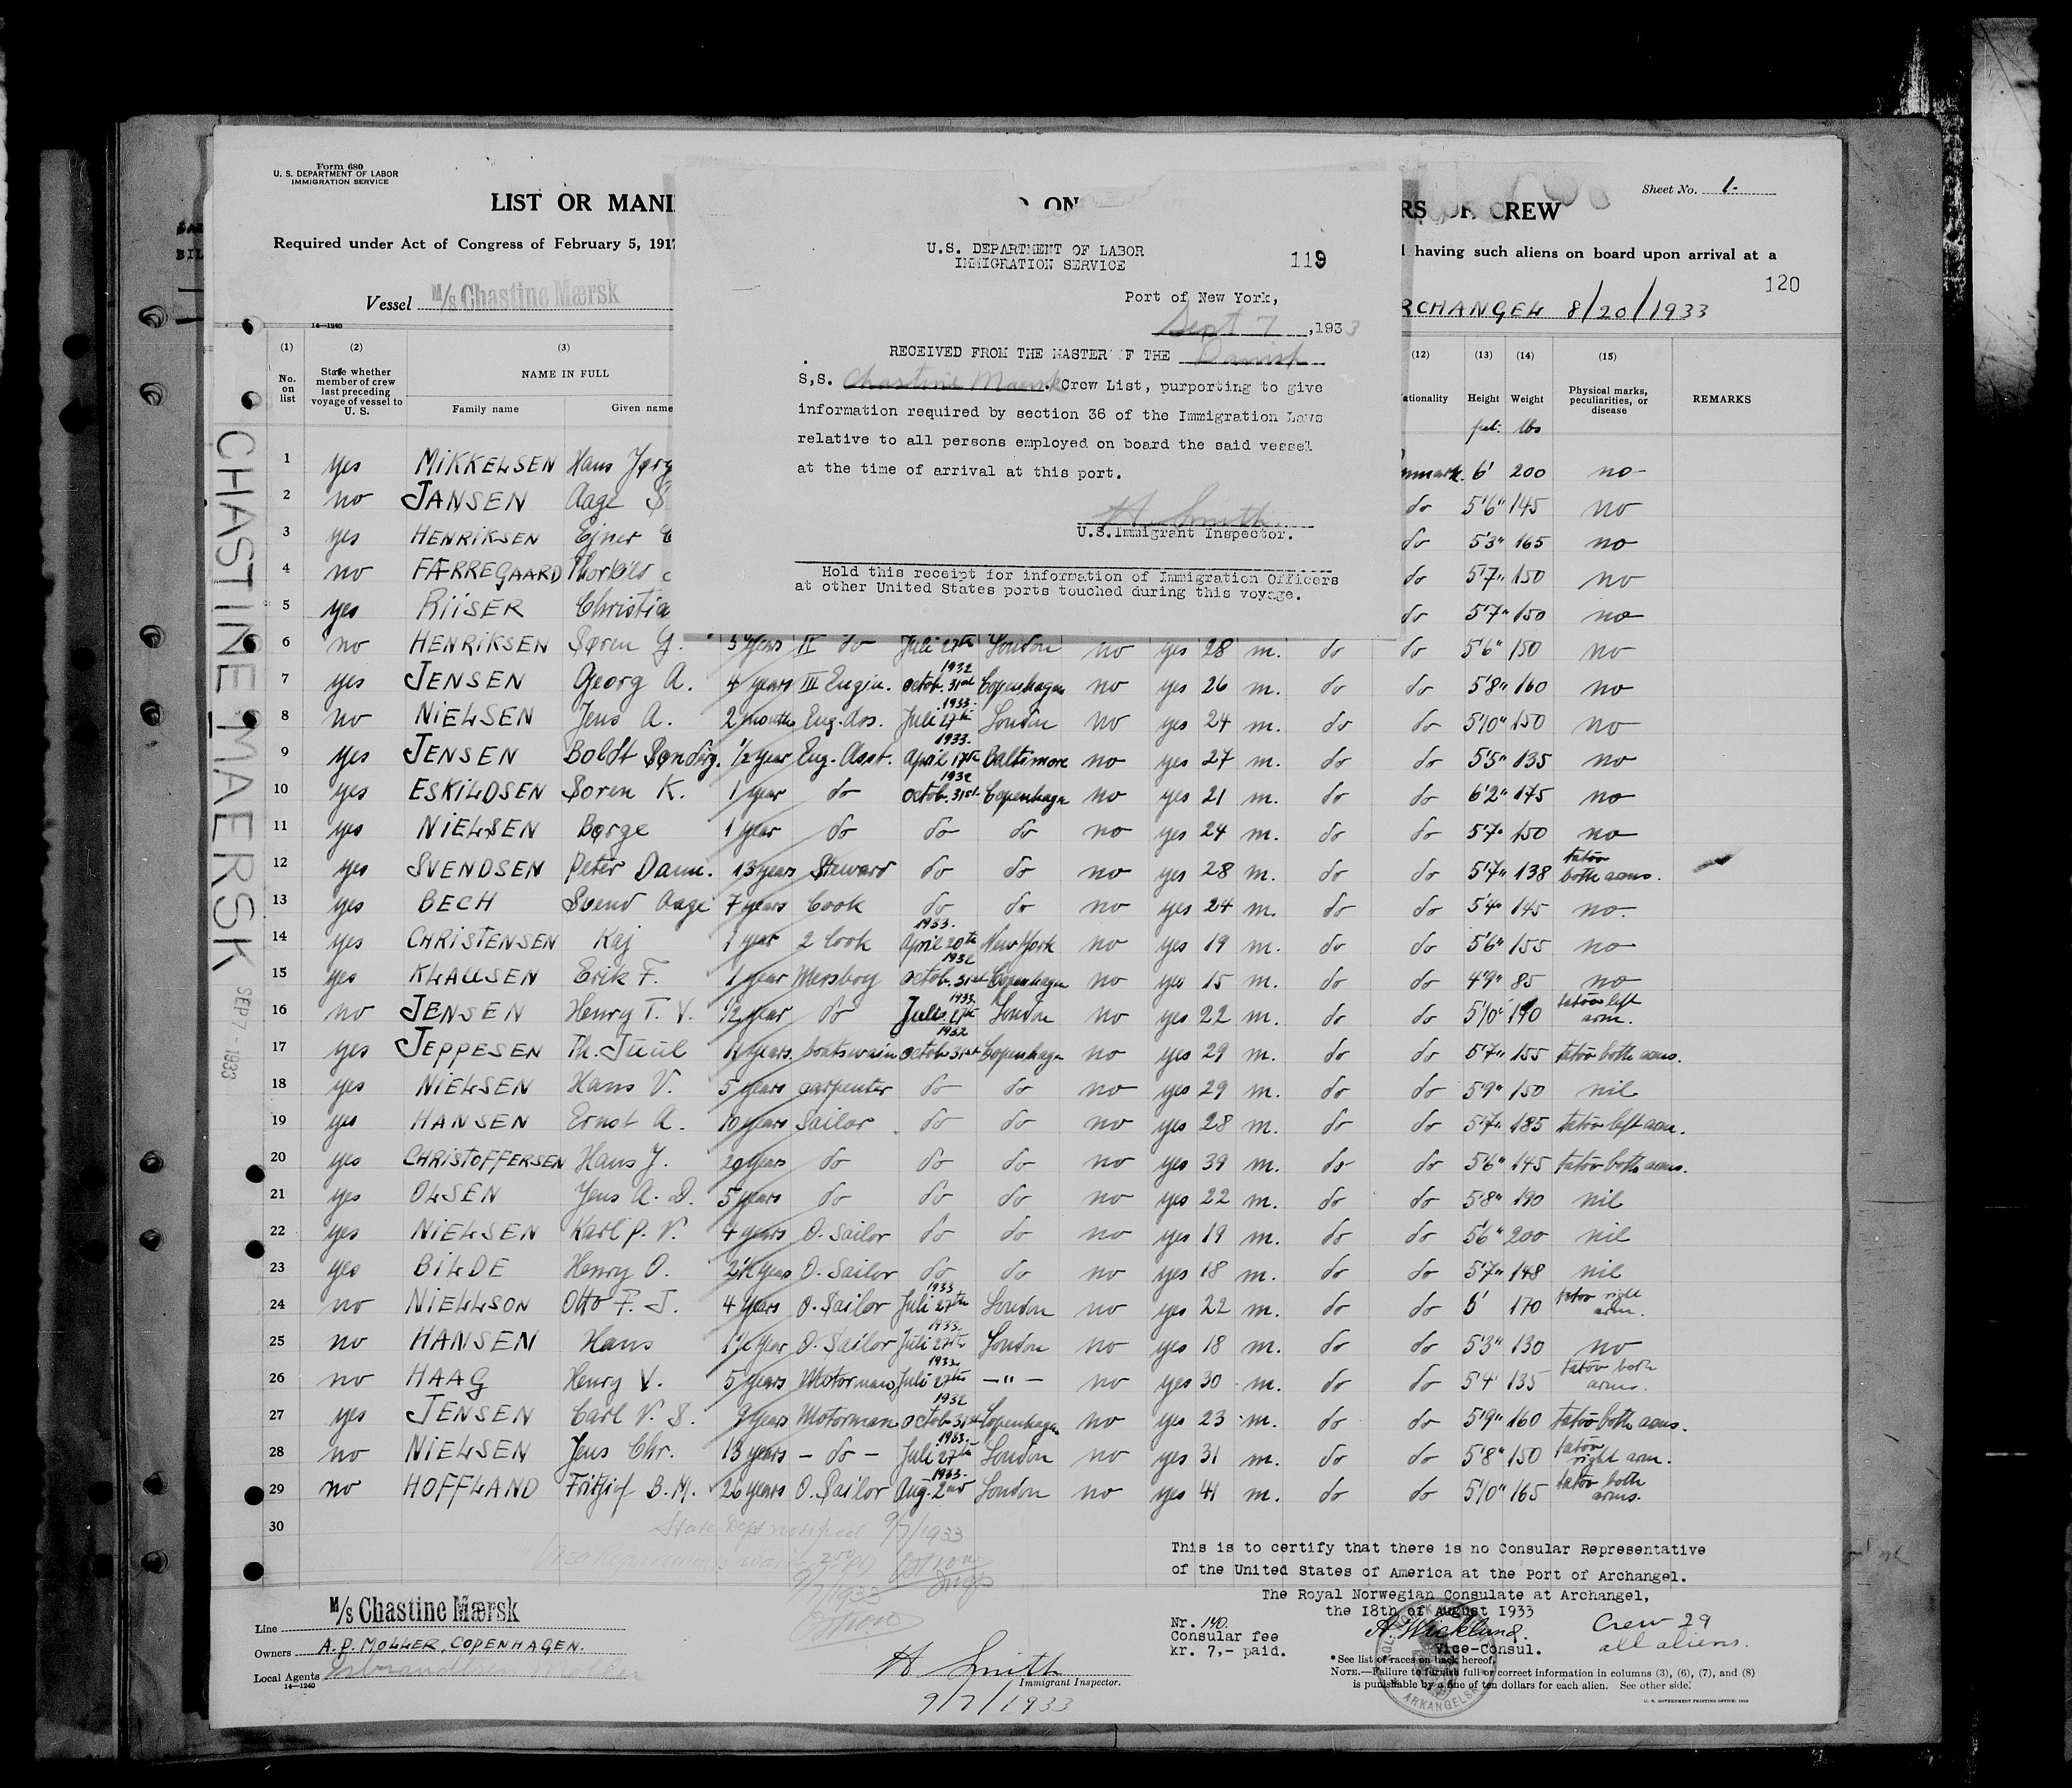 Form 680
U. S. DEPARTMENT OF LABOR
IMMIGRATION SERVICE
Sheet No. 1.
LIST OR MANI
ON
RS OR CREW
Required under Act of Congress of February 5, 1917
having such aliens on board upon arrival at a
120
Vessel M/s Chastine Mærsk
RCHANGEL 8/20/1933
U.S. DEPARTMENT OF LABOR
IMMIGRATION SERVICE
119
Port of New York,
Sept 7, 1933
RECEIVED FROM THE MASTER OF THE Danish
S,S. Chastine Maersk Crew List, purporting to give
information required by section 36 of the Immigration Laws
relative to all persons employed on board the said vessel
at the time of arrival at this port.
H Smith
U.S.Immigrant Inspector.
Hold this receipt for information of Immigration Officers
at other United States ports touched during this voyage.
14—1240
(1) (2) (3) (12) (13) (14) (15)
No. on list
State whether member of crew last preceding voyage of vessel to U. S.
NAME IN FULL
Family name Given name
ationality Height Weight Physical marks, peculiarities, or disease REMARKS
lbs
1 yes MIKKELSEN Hans Jørg nmark. 6' 200 no
2 no JANSEN Aage S do 5'6" 145 no
3 yes HENRIKSEN Ejner E do 5'3" 165 no
4 no FÆRREGAARD do 5'7" 150 no
5 yes RIISER Christia do 5'7" 150 no
6 no HENRIKSEN Søren G. 5 years II do Juli 27th London no yes 28 m. do do 5'6" 150 no
7 yes JENSEN Georg A. 4 years III Engin. 1932 octob. 31st Copenhagen no yes 26 m. do do 5'8" 160 no
8 no NIELSEN Jens A. 2 months Eng. Ass. 1933. Juli 27th London no yes 24 m. do do 5'10" 150 no
9 yes JENSEN Boldt Søndbg. 1/2 year Eng. Asst. 1933. April 17th Baltimore no yes 27 m. do do 5'5" 135 no
10 yes ESKILDSEN Soren K. 1 year do 1932 octob. 31st Copenhagen no yes 21 m. do do 6'2" 175 no
11 yes NIELSEN Børge 1 year do do do no yes 24 m. do do 5'7" 150 no
12 yes SVENDSEN Peter Dam. 13 years Steward do do no yes 28 m. do do 5'7" 138 tatov both arms.
13 yes BECH Svend Aage 7 years Cook do do no yes 24 m. do do 5'4" 145 no.
14 yes CHRISTENSEN Kaj 1 year 2 Cook 1933. April 20th New York no yes 19 m. do do 5'6" 155 no
15 yes KLAUSEN Erik F. 1 year Messboy 1932 octob. 31st Copenhagen no yes 15 m. do do 4'9" 85 no
16 no JENSEN Henry T. V. 1/2 year do 1933 Juli 27th London no yes 22 m. do do 5'10" 190 tatov left arm.
17 yes JEPPESEN Th. Juul years boatswain 1932 octob 31st Copenhagen no yes 29 m. do do 5'7" 155 tatov both arms.
18 yes NIELSEN Hans V. 5 years carpenter do do no yes 29 m. do do 5'9" 150 nil
19 yes HANSEN Ernst A. 10 years Sailor do do no yes 28 m. do do 5'7" 185 tatov left arm.
20 yes CHRISTOFFERSEN Hans J. 20 years do do do no yes 39 m. do do 5'6" 145 tatov both arms.
21 yes OLSEN Jens A. D. 5 years do do do no yes 22 m. do do 5'8" 190 nil
22 yes NIELSEN Karl P. V. 4 years O. Sailor do do no yes 19 m. do do 5'6" 200 nil
23 yes BILDE Henry O. 2 1/2 years O. Sailor do do no yes 18 m. do do 5'7" 148 nil
24 no NIELLSON Otto F. J. 4 years O. Sailor 1933 Juli 27th London no yes 22 m. do do 6' 170 tatov right arm.
25 no HANSEN Hans 1 1/2 year O. Sailor 1933 Juli 27th London no yes 18 m. do do 5'3" 130 no
26 no HAAG Henry V. 5 years Motorman 1933 Juli 27th —"— no yes 30 m. do do 5'4" 135 tatov both arms.
27 yes JENSEN Carl V. S. 9 years Motorman 1932 octob 31st Copenhagen no yes 23 m. do do 5'9" 160 tatov both arms.
28 no NIELSEN Jens Chr. 13 years — do — 1933. Juli 27th London no yes 31 m. do do 5'8" 150 tatov right arm.
29 no HOFFLAND Fritjof B. M. 26 years O. Sailor 1933. Aug. 2nd London no yes 41 m. do do 5'10" 165 tatov both arms.
30
CHASTINE MAERSK
SEP 7 - 1933
State Dept notified 9/7/1933
9/7/1933
This is to certify that there is no Consular Representative
of the United States of America at the Port of Archangel.
The Royal Norwegian Consulate at Archangel,
the 18th of August 1933
Nr. 140.
Consular fee
kr. 7,- paid.
A. Wicklund.
Vice-Consul.
Crew 29
all aliens.
Line M/s Chastine Mærsk
Owners A.P. MOLLER, COPENHAGEN.
Local Agents Isbrandtsen Moller
14—1240
H Smith
Immigrant Inspector.
9/7/1933
* See list of races on back hereof.
NOTE.—Failure to furnish full or correct information in columns (3), (6), (7), and (8)
is punishable by a fine of ten dollars for each alien. See other side.
U. S. GOVERNMENT PRINTING OFFICE: 1929
ARKANGELSK